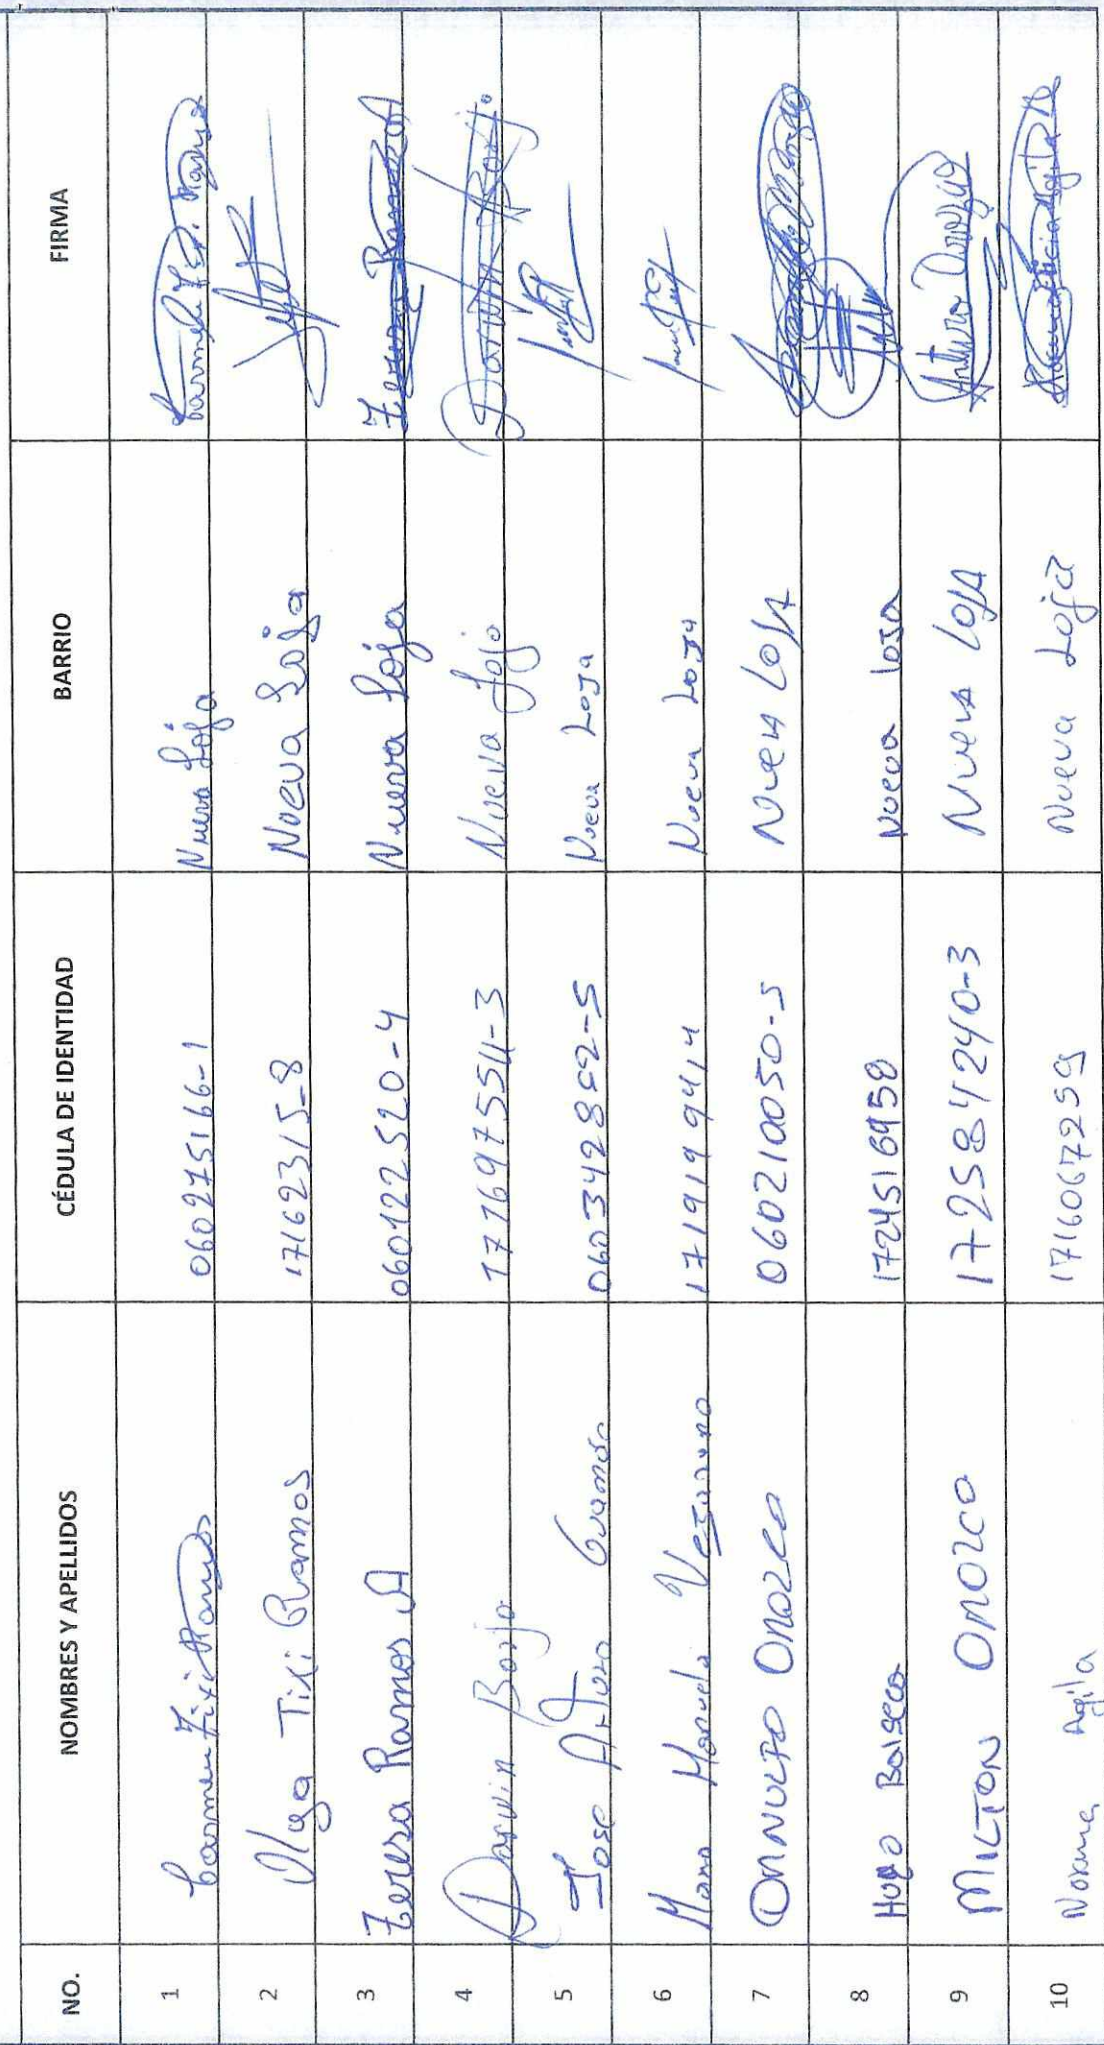 NO. NOMBRES Y APELLIDOS CÉDULA DE IDENTIDAD BARRIO FIRMA
1 Carmen Tixi Ramos 060275166-1 Nueva Loja
2 Olga Tixi Ramos 17162315-8 Nueva Loja
3 Teresa Ramos A 060122520-4 Nueva Loja Teresa Ramos A
4 Darwin Borja 177697554-3 Nueva Loja Darwin Borja
5 Jose Arturo Nueva Loja
6 Maria Manuela 1719199414 Nueva Loja
7 ORNULFO OROZCO 060210050-5 Nueva LOJA
8 Hugo Balseca 1724516958 Nueva Loja
9 MILTON OROZCO 172584240-3 Nueva LOJA Arturo Orozco
10 Norma Agila 1716067259 Nueva Loja